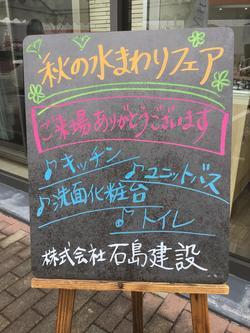 秋の水まわりフェア
ご来場ありがとうございます
♪キッチン
♪ユニットバス
♪洗面化粧台
♪トイレ
株式会社 石島建設